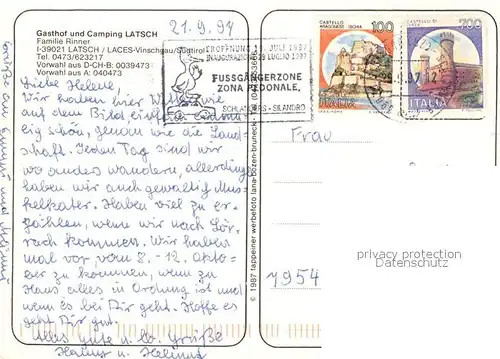 Gasthof und Camping LATSCH
Familie Rinner
I-39021 LATSCH / LACES-Vinschgau/Südtirol
Tel. 0473/623217
Vorwahl aus D-CH-B: 0039473
Vorwahl aus A: 040473
21.9.97
ERÖFFNUNG JULI 1997
INAUGURAZIONE LUGLIO 1997
FUSSGÄNGERZONE
ZONA PEDONALE
SCHLANDERS - SILANDRO
CASTELLO
ARAGONESE ISCHIA
100
ITALIA
CASTELLO DI
700
ITALIA
Liebe Helene,
Wir haben hier
auf dem Bild
eig schön, genau wie die Land-
schaft. Jeden Tag sind wir
wo anders wandern, allerdings
haben wir auch gewaltig Mus-
kelkater. Haben viel zu er-
zählen, wenn wir nach Lör-
rach kommen. Wir haben
mal vor vom 8. - 12. Okto-
ber zu kommen, wenn zu
Haus alles in Ordnung ist und
wenn es bei Dir geht. Hoffe es
geht Dir gut.
Alles Gute u. lb. Grüße
u. Helmut
Grüße an und
© 1987 tappeiner werbefoto lana-bozen-bruneck
Frau
7954
privacy protection
Datenschutz